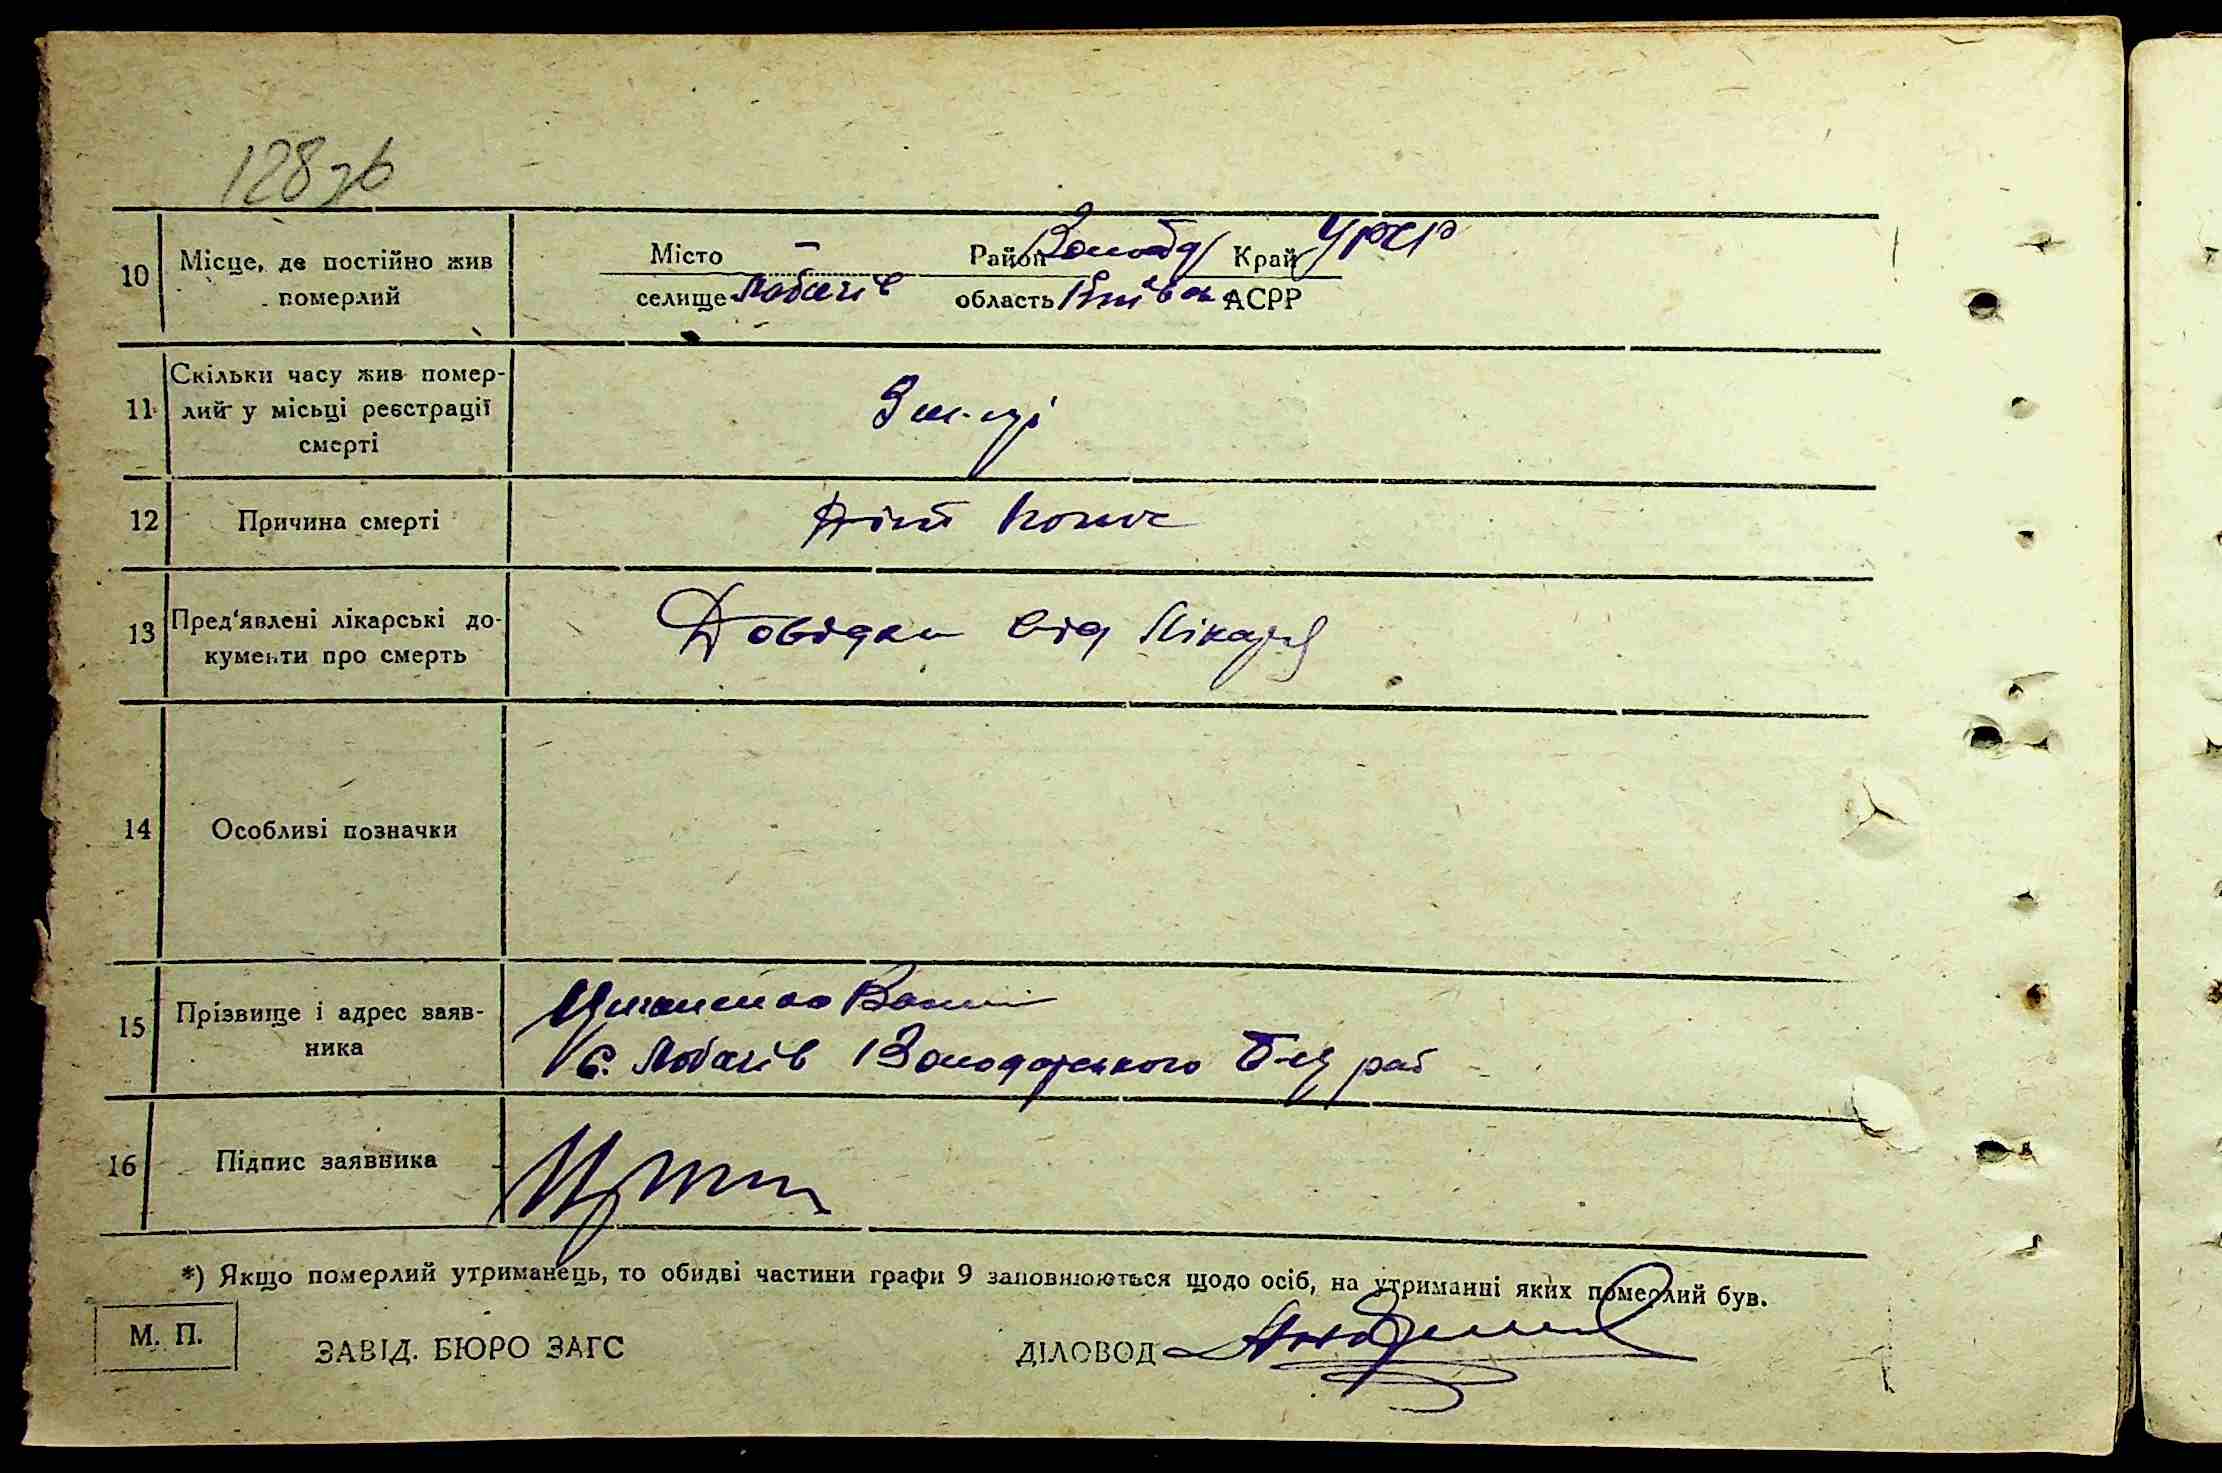 128 зв
10 Місце, де постійно жив померлий
Місто – Район Володар Край УРСР
селище Лобачів область Київськ АСРР
11 Скільки часу жив помер-
лий у місьці реєстрації
смерті
3 м-ці
12 Причина смерті
13 Пред'явлені лікарські до-
кументи про смерть
Довідка від лікаря
14 Особливі позначки
15 Прізвище і адрес заяв-
ника
с. Лобачів Володарського р-ну
16 Підпис заявника
*) Якщо померлий утриманець, то обидві частини графи 9 заповнюються щодо осіб, на утриманні яких померлий був.
М. П.
ЗАВІД. БЮРО ЗАГС ДІЛОВОД